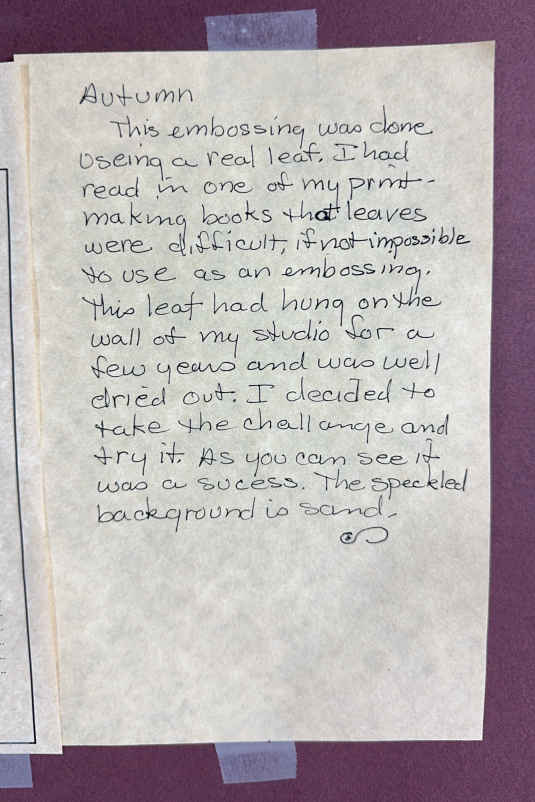 Autumn
This embossing was done
useing a real leaf. I had
read in one of my print-
making books that leaves
were difficult, if not impossible
to use as an embossing.
This leaf had hung on the
wall of my studio for a
few years and was well
dried out. I decided to
take the challange and
try it. As you can see it
was a sucess. The speckled
background is sand.